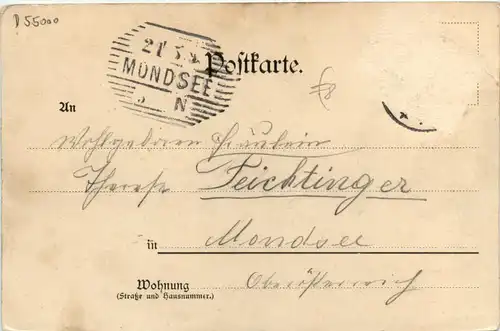 D 55000
21 5 9
MONDSEE
N
Postkarte.
An
Wohlgeboren Fräulein
Therese Feichtinger
in Mondsee
Wohnung Oberösterreich
(Straße und Hausnummer.)